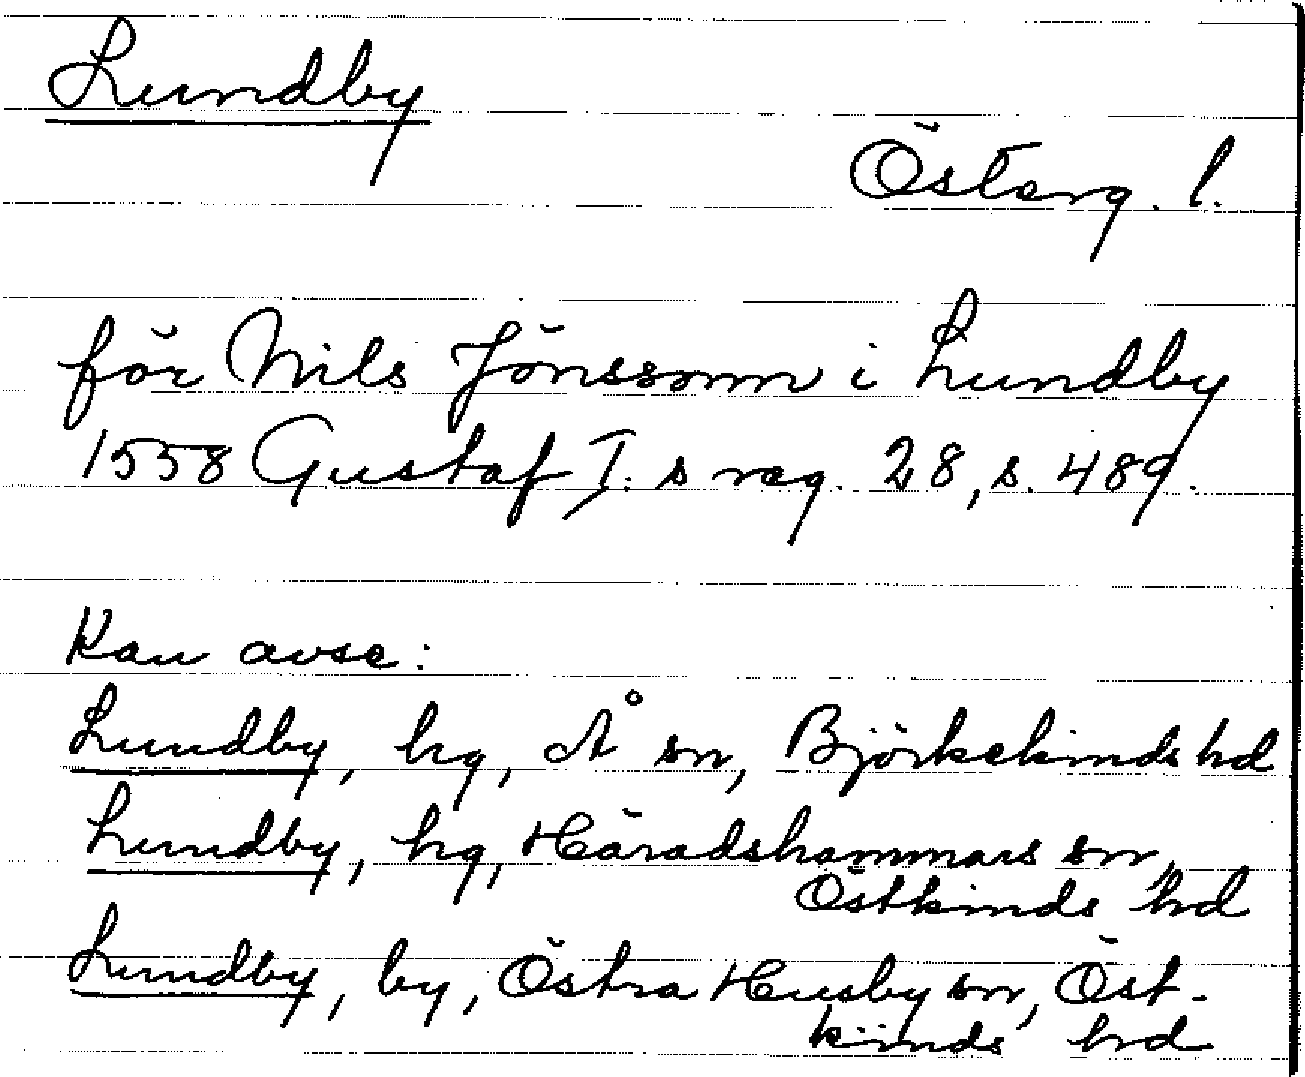 Lundby
Österg. l.
för Nils Jönssonn i Lundby
1558 Gustaf I:s reg. 28, s. 489.
Kan avse:
Lundby, hg, Å sn, Björkekinds hd
Lundby, hg, Häradshammars sn,
Östkinds hd
Lundby, by, Östra Husby sn, Öst-
kinds hd